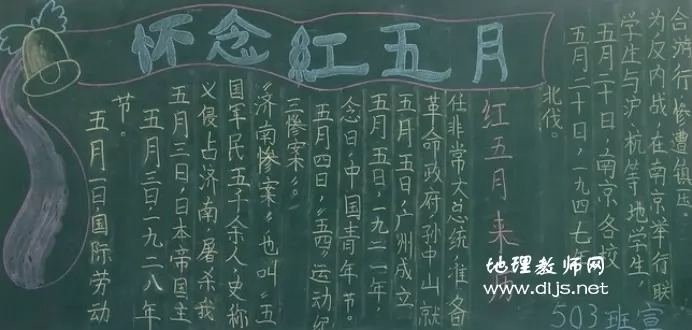 怀念红五月
红五月来
五月一日国际劳动
节。
五月三日一九二八年
五月三日,日本帝国主
义侵占济南,屠杀我
国军民五千余人,史称
“济南惨案”也叫“五
三惨案”。
五月四日,“五四”运动纪
念日,中国青年节。
五月五日,一九二一年,
五月五日,广州成立
革命政府,孙中山就
任非常大总统,准备
北伐。
五月二十日,一九四七
五月二十日,南京各校
学生与沪、杭等地学生,
为反内战,在南京举行联
合游行,惨遭镇压。
503班宣
地理教师网
www.dljs.net